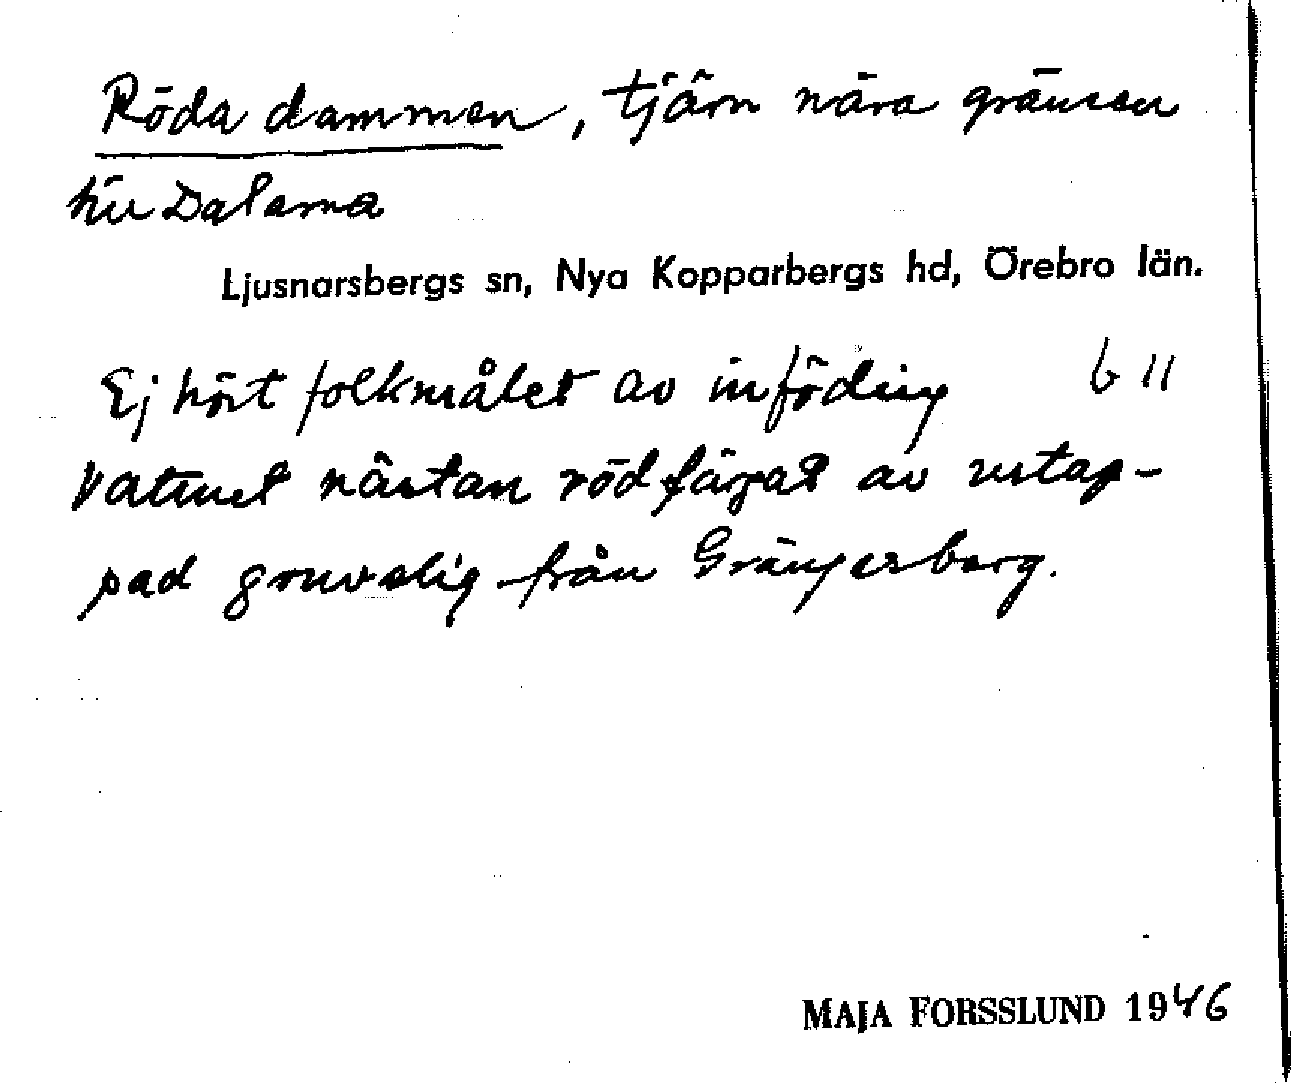 Röda dammen, tjärn nära gränsen
till Dalarna
Ljusnarsbergs sn, Nya Kopparbergs hd, Örebro län.
Ej hört folkmålet av inföding 6 11
Vattnet nästan rödfärgat av utap-
pad gruvslig från Grängesberg.
MAJA FORSSLUND 1946